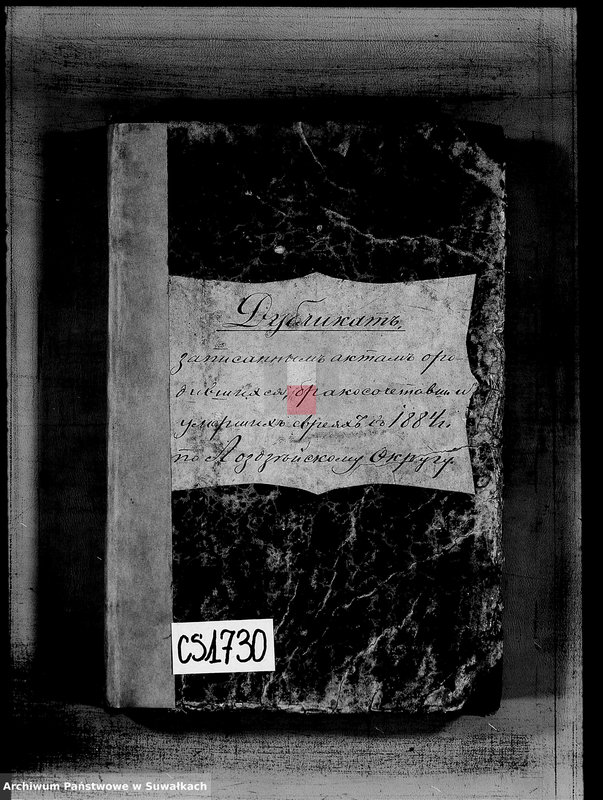 Дубликатъ
записаннымъ актамъ оро-
дившихся, бракосочетавших
умершихъ евреяхъ въ 1884 г.
по Лоздзѣйскому Округу
CS1730
Archiwum Państwowe w Suwałkach